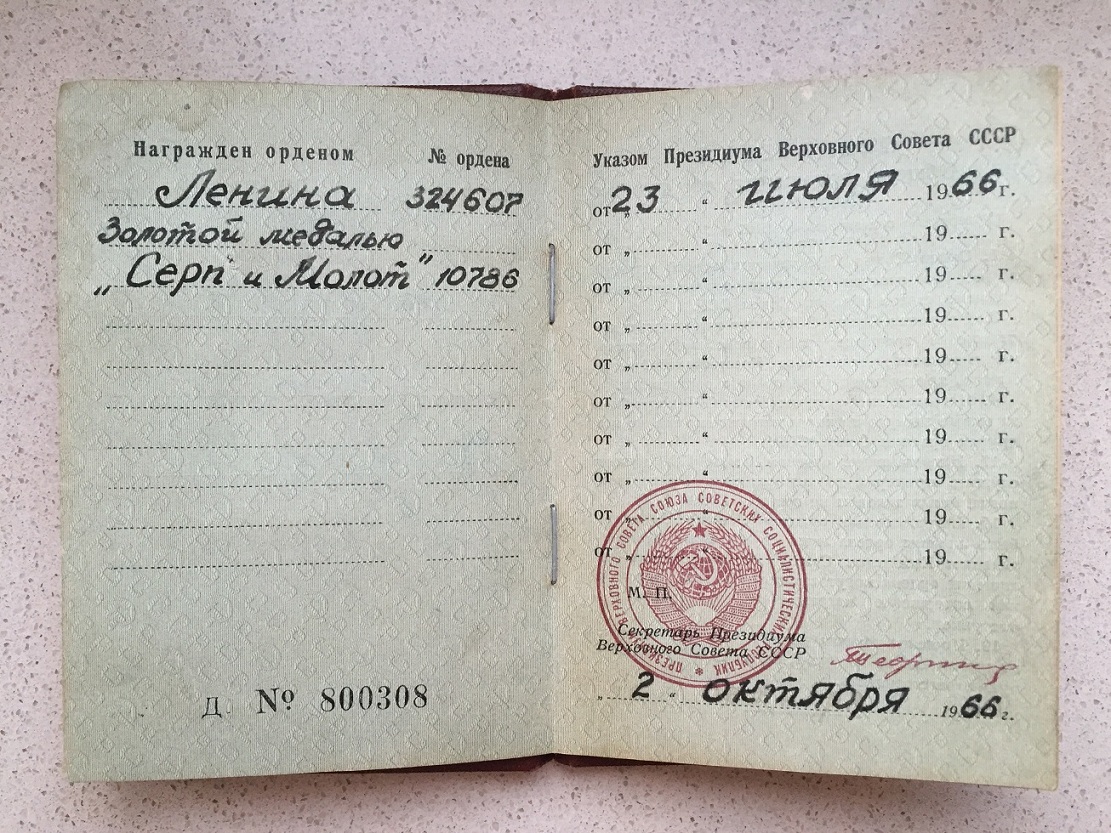 Награжден орденом № ордена
Ленина 324607
Золотой медалью
„Серп и Молот" 10786
Д № 800308
Указом Президиума Верховного Совета СССР
от „ 23 " июля 1966 г.
от „ " 19 г.
от „ " 19 г.
от „ " 19 г.
от „ " 19 г.
от „ " 19 г.
от „ " 19 г.
от „ " 19 г.
от „ " 19 г.
от „ " 19 г.
ПРЕЗИДИУМ ВЕРХОВНОГО СОВЕТА СОЮЗА СОВЕТСКИХ СОЦИАЛИСТИЧЕСКИХ РЕСПУБЛИК
М. П.
Секретарь Президиума
Верховного Совета СССР
„ 2 " октября 1966 г.